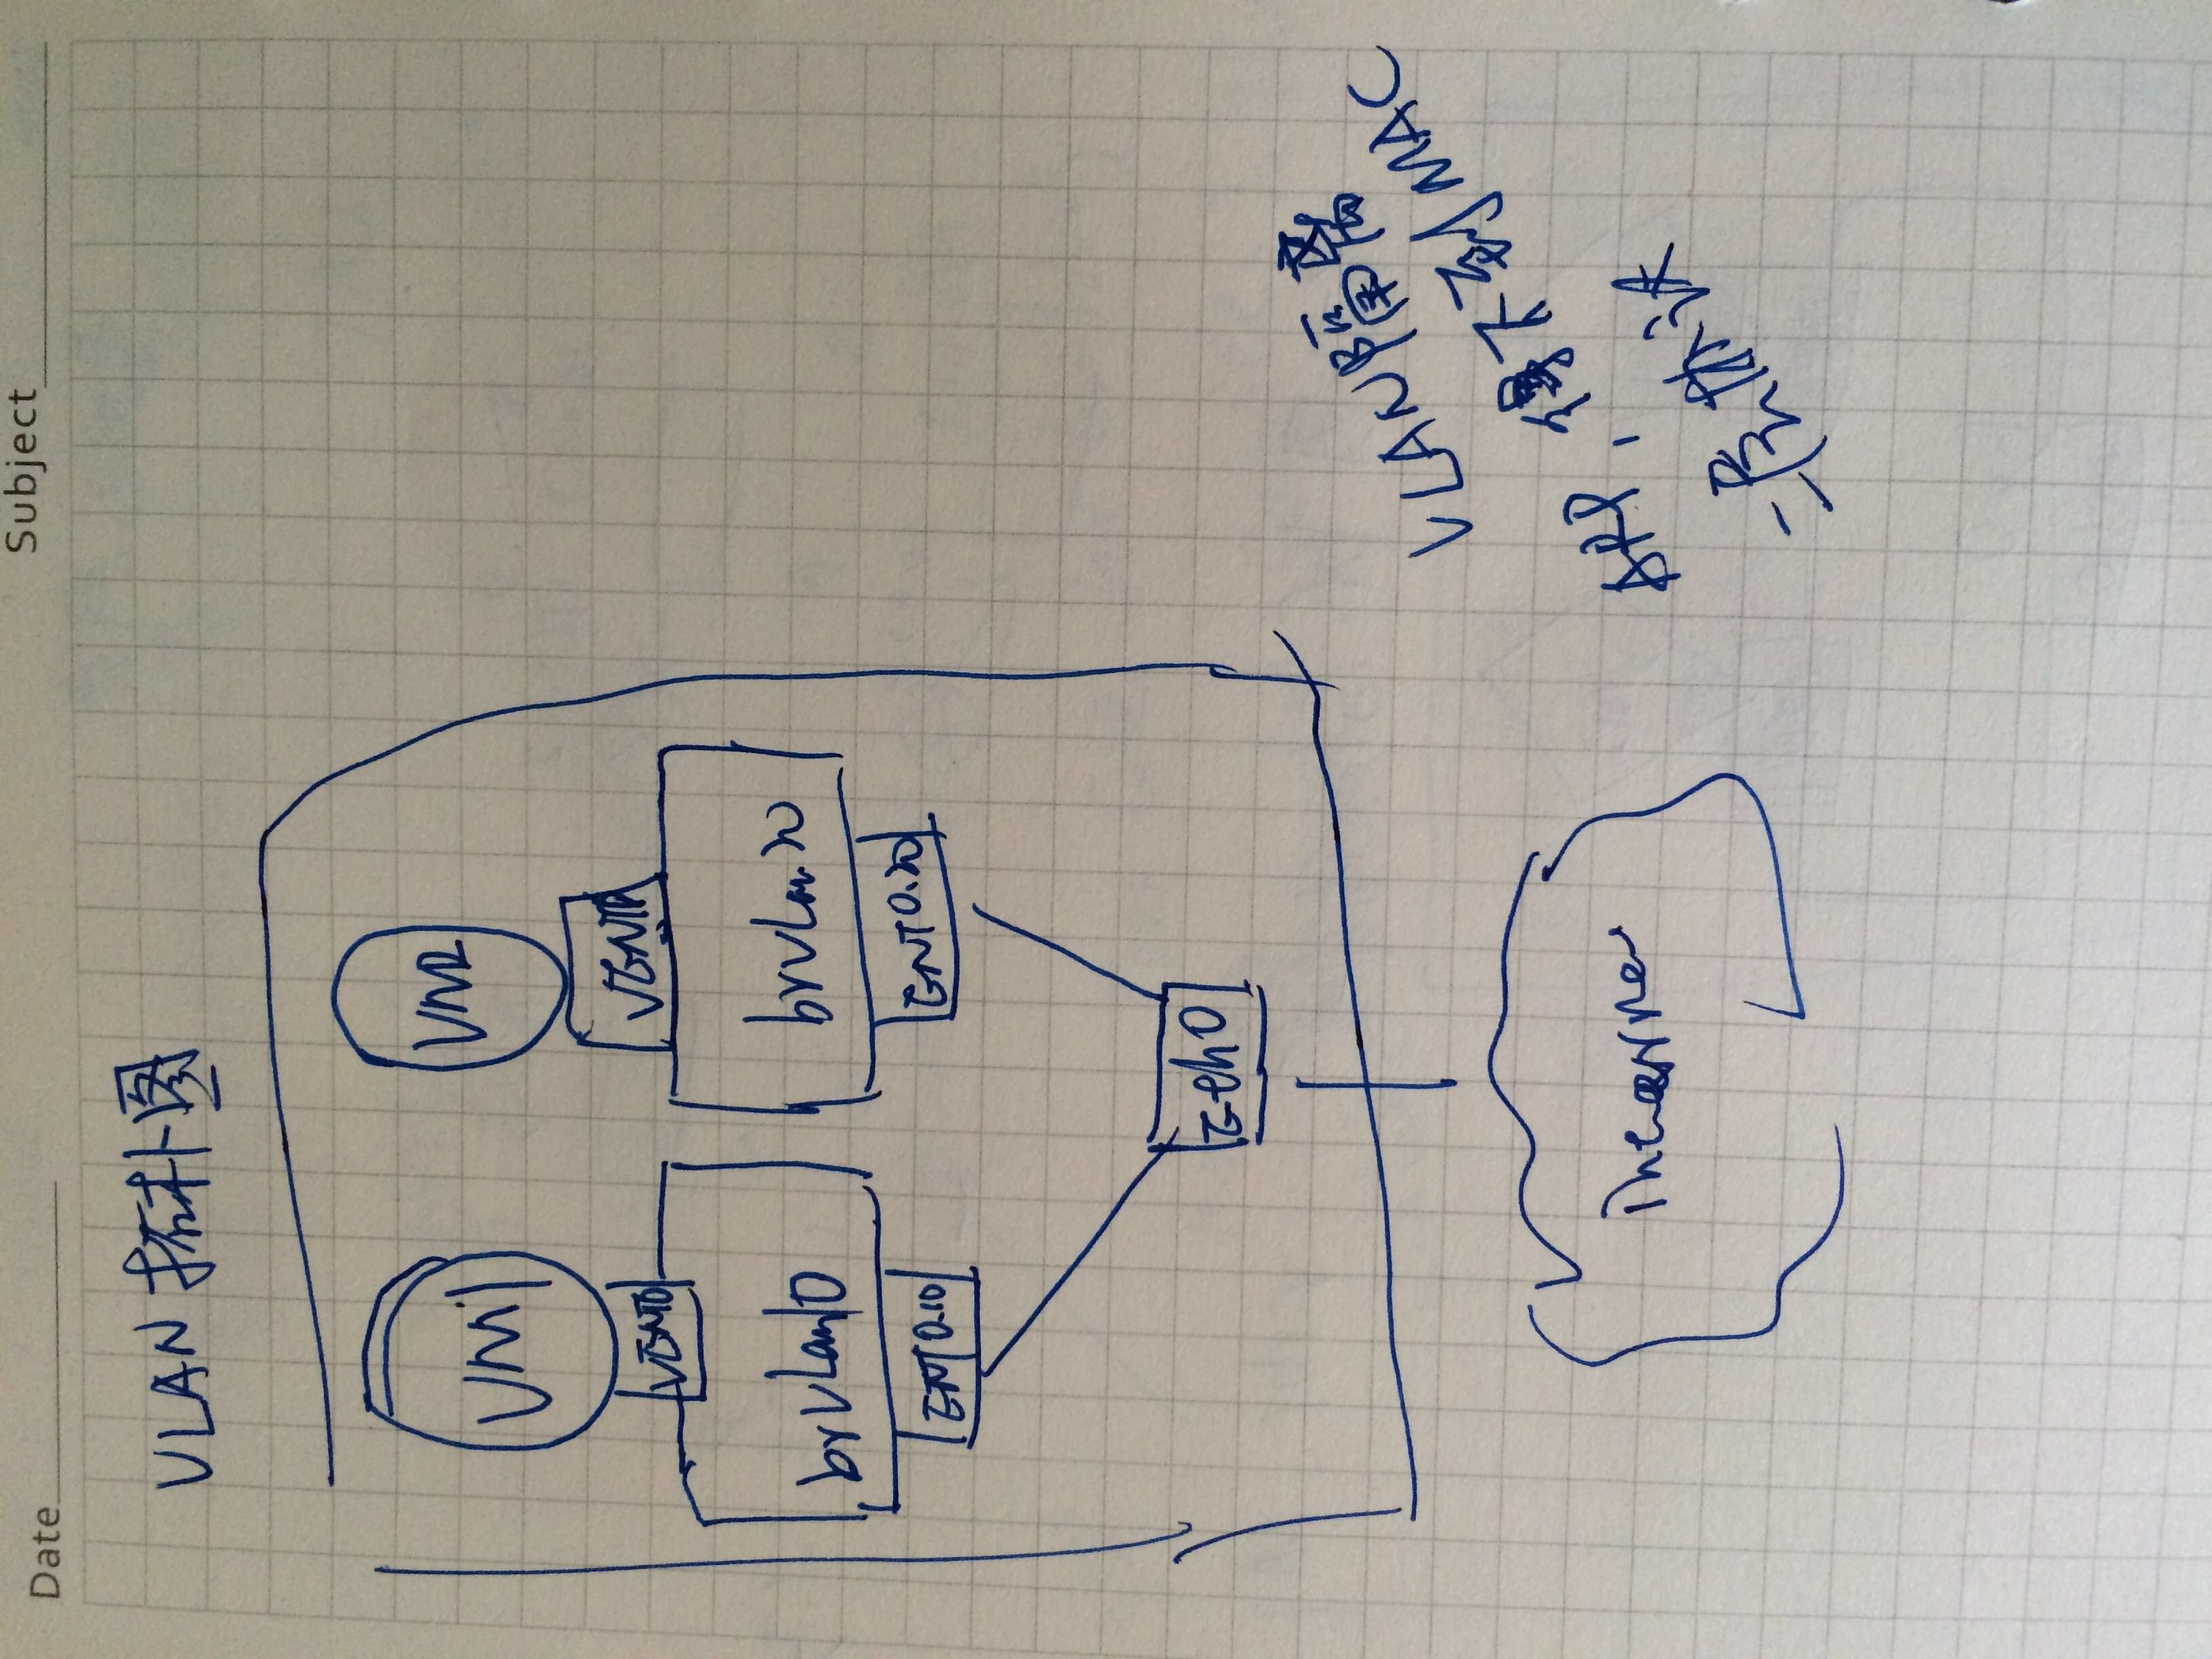 Date
Subject
VLAN 拓扑图
VM1
VM2
VENT0
brVLan10
brVLan20
ENT0.10
ENT0.20
Eeh0
VLAN隔离
ARP,得不到MAC
二层协议